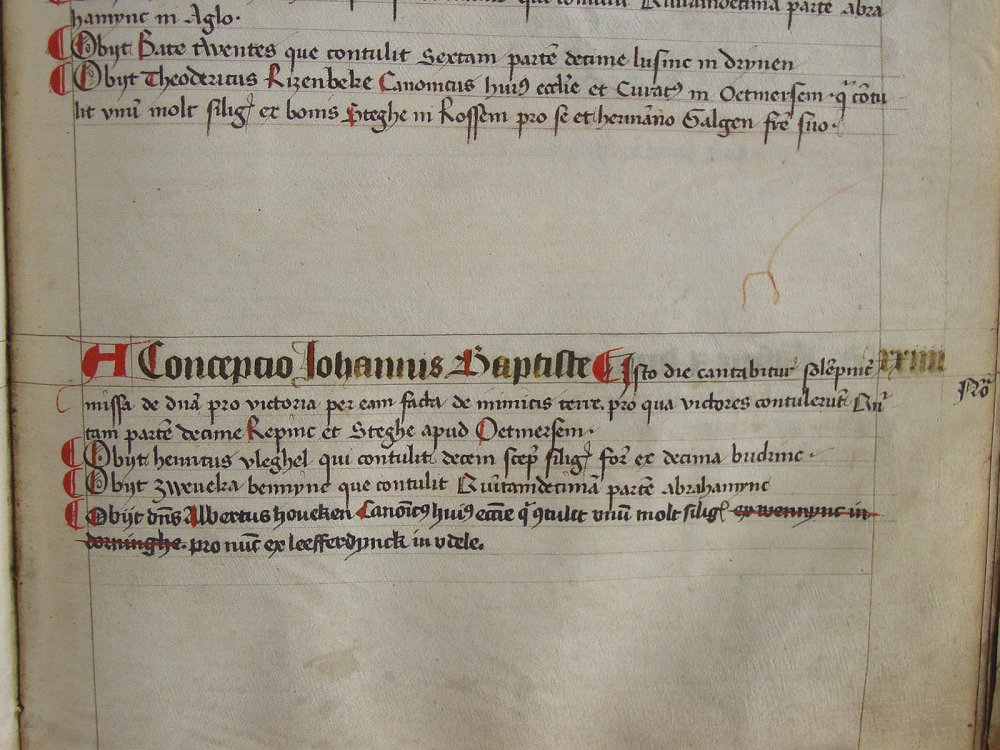 parte abra
hamync in Aglo.
Obijt Bate tWentes que contulit Sextam partē decime lusinc in drynen
Obijt Theodericus Rizenbeke Canonicus huiꝰ ecclīe et Curatꝰ in Oetmersem . q̄ cōtu
lit vnū molt siliḡ ex bonis Steghe in Rossem pro se et hermāno Galgen frē suo.
A Concepcio Johannis Baptiste Isto die cantabitur solēpnit̄ xxiiii
missa de dnā pro victoria per eam facta de inimicis terre. pro qua victores contulerūt Quī Nō
tam partē decime Repinc et Steghe apud Oetmersem.
Obijt henricus vleghel qui contulit decem scep̄ siliḡ for̄ ex decima budinc.
Obijt zweneka bennync que contulit Quītamdecimā partē abrahamync
Obijt dn̄s Albertus houeken Canōicꝰ huiꝰ eccīe q̄ ꝯtulit vnū molt siliḡ ex wennync in
dorninghe. pro nūc ex leefferdynck in vdele.